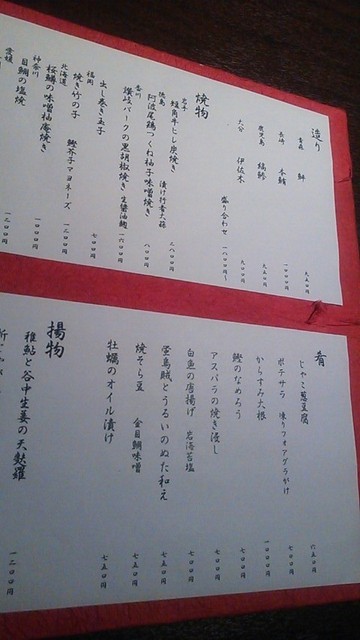 造り
青森 鰤 九五〇円
長崎 本鮪 一八〇〇円
鹿児島 縞鯵 九五〇円
大分 伊佐木 九〇〇円
盛り合わせ 一八〇〇円〜
焼物
岩手 短角牛ヒレ炭焼き 漬け行者大蒜 二八〇〇円
徳島 阿波尾鶏つくね柚子味噌焼き 八〇〇円
香川 讃岐ポークの黒胡椒焼き 生醤油麹 一六〇〇円
福岡 出し巻き玉子 七〇〇円
北海道 焼き竹の子 鱈芥子マヨネーズ 一二〇〇円
神奈川 桜鱒の味噌柚庵焼き 一〇〇〇円
愛媛 目鯛の塩焼 一二〇〇円
肴
じゃこ葱豆腐 六五〇円
ポテサラ 凍りフォアグラがけ 七〇〇円
からすみ大根 一〇〇〇円
鰹のなめろう 七〇〇円
アスパラの焼き浸し 七〇〇円
白魚の唐揚げ 岩海苔塩 七〇〇円
蛍烏賊とうるいのぬた和え 七五〇円
焼そら豆 金目鯛味噌 七五〇円
牡蠣のオイル漬け 七五〇円
揚物
稚鮎と谷中生姜の天麩羅 一二〇〇円